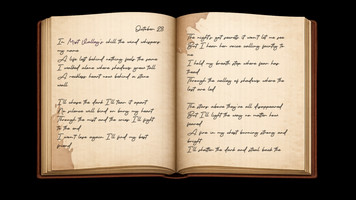 October 23
In Mist Valley's chill the wind whispers
my name
A life left behind nothing feels the same
I walked alone where shadows grew tall
A restless heart now behind a stone
wall
I'll chase the dark I'll tear it apart
No silence will bind or bury my heart
Through the mist and the cries I'll fight
to the end
I won't lose again I'll find my best
friend
The night's got secrets it won't let me see
But I hear her voice calling faintly to
me
I hold my breath step where fear has
tread
Through the valley of shadows where the
lost are led
The stars above they've all disappeared
But I'll light the way no matter how
feared
A fire in my chest burning strong and
bright
I'll shatter the dark and steal back the